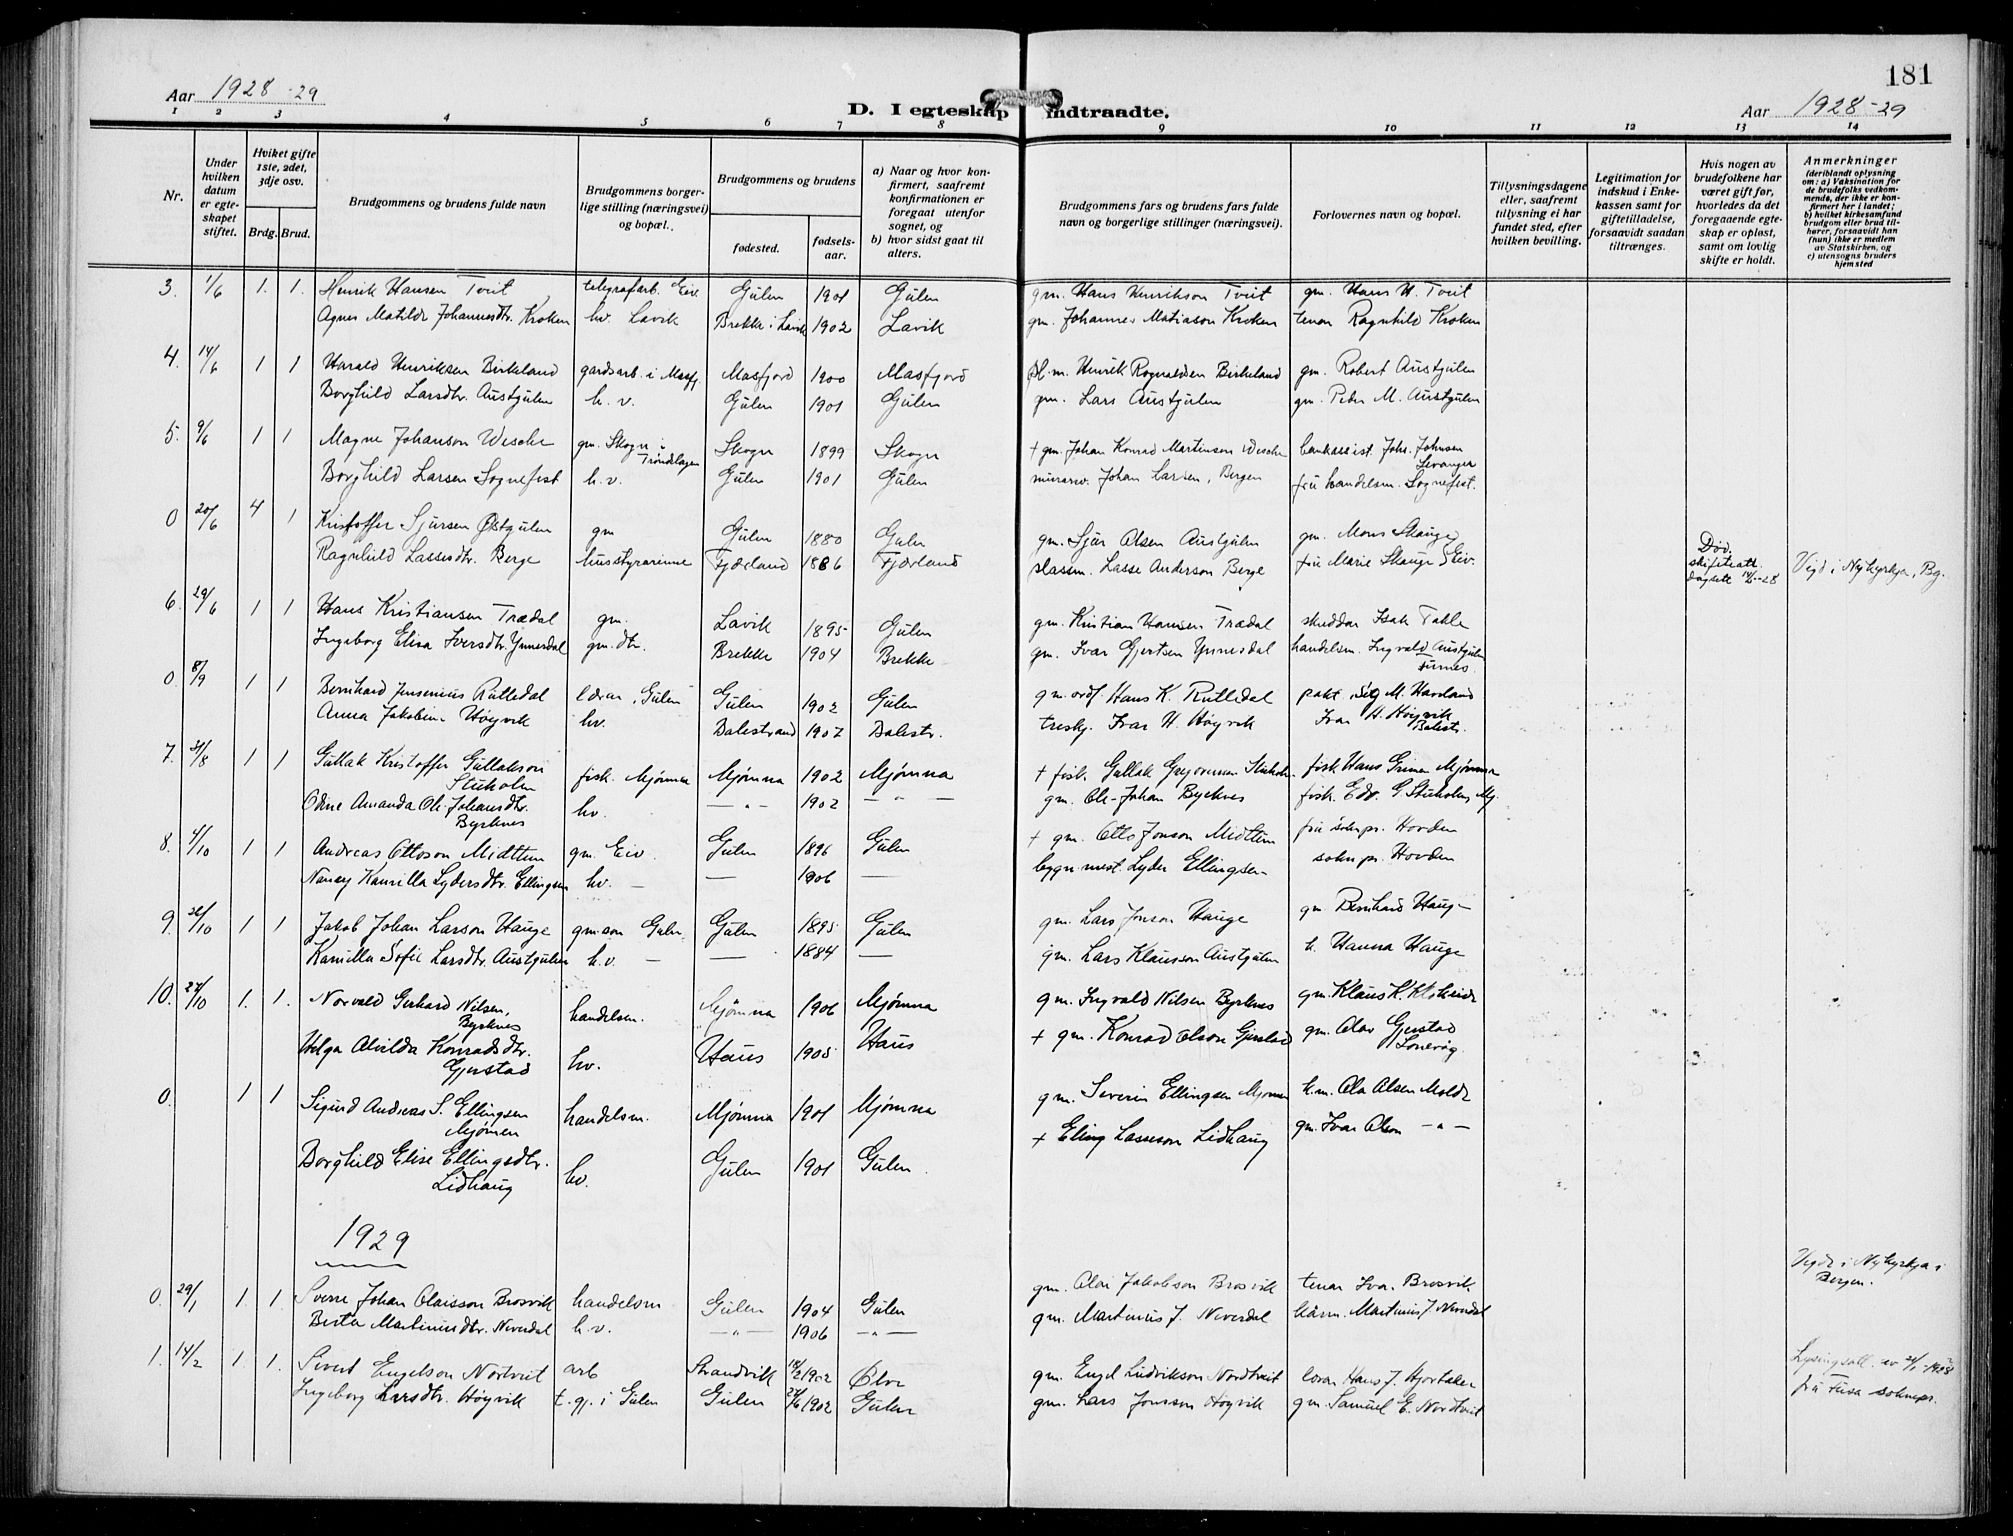 181
Aar 1928-29
D. I egteskap indtraadte.
Aar 1928-29
1 2 3 4 5 6 7 8 9 10 11 12 13 14
Nr.
Under hvilken datum er egteskapet stiftet.
Hvilket gifte 1ste, 2det, 3dje osv.
Brdg. Brud.
Brudgommens og brudens fulde navn
Brudgommens borgerlige stilling (næringsvei) og bopæl.
Brudgommens og brudens
fødested.
fødselsaar.
a) Naar og hvor konfirmert, saafremt konfirmationen er foregaat utenfor sognet, og
b) hvor sidst gaat til alters.
Brudgommens fars og brudens fars fulde navn og borgerlige stillinger (næringsvei).
Forlovernes navn og bopæl.
Tillysningsdagene eller, saafremt tillysning ei har fundet sted, efter hvilken bevilling.
Legitimation for indskud i Enkekassen samt for giftetilladelse, forsaavidt saadan tiltrænges.
Hvis nogen av brudefolkene har været gift før, hvorledes da det foregaaende egteskap er opløst, samt om lovlig skifte er holdt.
Anmerkninger
(deriblandt oplysning om: a) Vaksination for de brudefolks vedkommende, der ikke er konfirmert her i landet; b) hvilket kirkesamfund brudgom eller brud tilhører, forsaavidt han (hun) ikke er medlem av Statskirken, og c) utensogns bruders hjemsted
3. 1/6 1. 1. Henrik Hansen Tveit telegrafarb. Eiv. Gulen 1901 Gulen gm. Hans Henrikson Tveit gm. Hans H. Tveit
Agnes Matilde Johannesdtr. Kroken hv. Lavik Brekke i Lavik 1902 Lavik gm. Johannes Matiason Kroken tenar Ragnhild Kroken
4. 14/6 1 1 Harald Henriksen Birkeland gardsarb. i Masfj. Masfjord 1900 Masfjord Henrik Rognaldsen Birkeland gm. Robert Austgulen
Borghild Larsdtr. Austgulen h. v. Gulen 1901 Gulen gm. Lars Austgulen gm. Peder M. Austgulen
5. 9/6 1 1 Magne Johanson Wesche gm. Skogn i Trøndelagen Skogn 1899 Skogn + gm. Johan Konrad Martinsen Wesche bankassist. Johs. Johnsen Levanger
Borghild Larsen Sognefest h.v. Gulen 1901 Gulen Johan Larsen, Bergen fru handelsm. Sognefest.
0 20/6 4 1 Kristoffer Sjursen Østgulen gm Gulen 1880 Gulen gm. Sjur Olsen Austgulen gm. Mons Skauge Død. skifteatt. dagsett -28 Vigd i Nykyrkja, Bg.
Ragnhild Lassesdtr. Berge husstyrarinne Fjærland 1886 Fjærland Lasse Anderson Berge fru Marie Skauge Eiv.
6. 29/6 1 1 Hans Kristiansen Trædal gm. Lavik 1895 Gulen gm. Kristian Hansen Trædal skreddar Isak Takle
Ingeborg Elisa Iversdtr. Ynnesdal gm. dtr. Brekke 1904 Brekke gm. Ivar Gjertsen Ynnesdal handelsm. Ingvald Austgulen
0. 8/9 1 1 Bernhard Jensenius Rutledal lærar, Gulen Gulen 1902 Gulen gm. ordf. Hans K. Rutledal M. Havland
Anna Jakobine Høyvik hv. Balestrand 1907 Balestr. treskj. Ivar H. Høyvik Ivar H. Høyvik Balestr.
7. 31/8 1 1 Gullak Kristoffer Gullakson Stuholm fisk. Mjømna Mjømna 1902 Mjømna + fisk. Gullak Stuholm fisk Hans Grimen Mjømna
Odine Amanda Ole-Johansdtr. Byrknes hv. — " — 1902 — " — gm. Ole-Johan Byrknes fisk. Edv. G. Stuholm, Mj.
8. 4/10 1 1 Andreas Ottoson Midttun gm. Eiv. Gulen 1896 Gulen + gm. Otto Jonson Midttun fru sokn.pr. Hovden
Nancy Kamilla Lydersdtr. Ellingsen hv. — — 1906 — bygn.mest. Lyder Ellingsen soknpr. Hovden
9. /10 1 1 Jakob Johan Larson Hauge gm.son Gulen Gulen 1895 Gulen gm. Lars Jonson Hauge gm. Bernhard Hauge
Kamilla Sofie Larsdtr. Austgulen h.v. — — 1884 — gm. Lars Klausson Austgulen h. Hanna Hauge
10. 27/10 1. 1. Norvald Gerhard Nilsen, Byrknes handelsm. Mjömna 1906 Mjømna gm. Ingvald Nilsen Byrknes gm. Klaus K.
Helga Alvilda Konradsdtr. Gjerstad hv. Haus 1905 Haus + gm. Konrad Olson Gjerstad gm. Olav Gjerstad
0. 1 1 Sigurd Andreas S. Ellingsen Mjömen handelsm. Mjømna 1901 Mjømna gm. Severin Ellingsen Mjømen k.m. Ola Olsen Molde
Borghild Elise Ellingsdtr. Lidhaug hv. Gulen 1901 Gulen + Eling Lasseson Lidhaug gm. Ivar Olson — " —
1929
0. 29/1 1. 1. Sverre Johan Olaisson Brosvik handelsm Gulen 1904 Gulen gm. Olai Jakobson Brosvik tenar Ivar Brosvik. Vigde i Nykyrkja i Bergen.
Berta Martinusdtr. Neverdal h.v. — " — 1906 — " — gm. Martinus J. Neverdal Martinus J. Neverdal
1. 14/2 1. 1. Sivert Engelson Nortveit arb Strandvik 1902 Ølve gm. Engel Ludvikson Nordtveit Hans J. Hjortaker Lysingsatt. av 1928 frå Fusa soknepr.
Ingeborg Larsdtr. Høyvik t.gj. i Gulen Gulen 1902 Gulen gm. Lars Jonsson Høyvik gm. Samuel E. Nordtveit